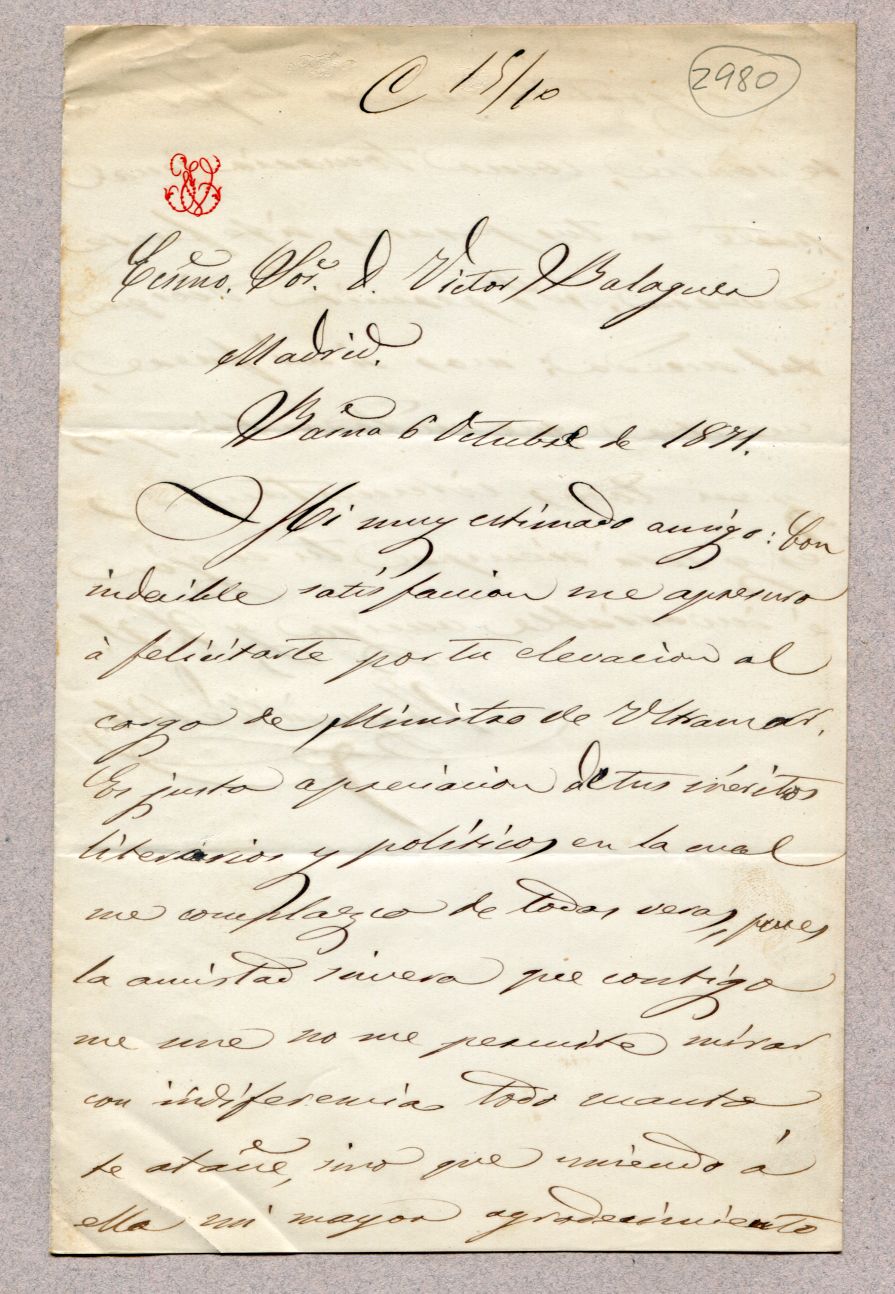 C 15/10
2980
Ecsmo. Sor. D. Victor Balaguer
Madrid.
Barna 6 Octubre de 1871.
Mi muy estimado amigo: Con
indecible satisfaccion me apresuro
á felicitarte por tu elevacion al
cargo de Ministro de Ultramar.
Es justa apreciacion de tus méritos
literarios y políticos en la cual
me complazco de todas veras, pues
la amistad sincera que contigo
me une no me permite mirar
con indiferencia todo cuanto
te atañe, sinó que uniendo á
ella mi mayor agradecimiento